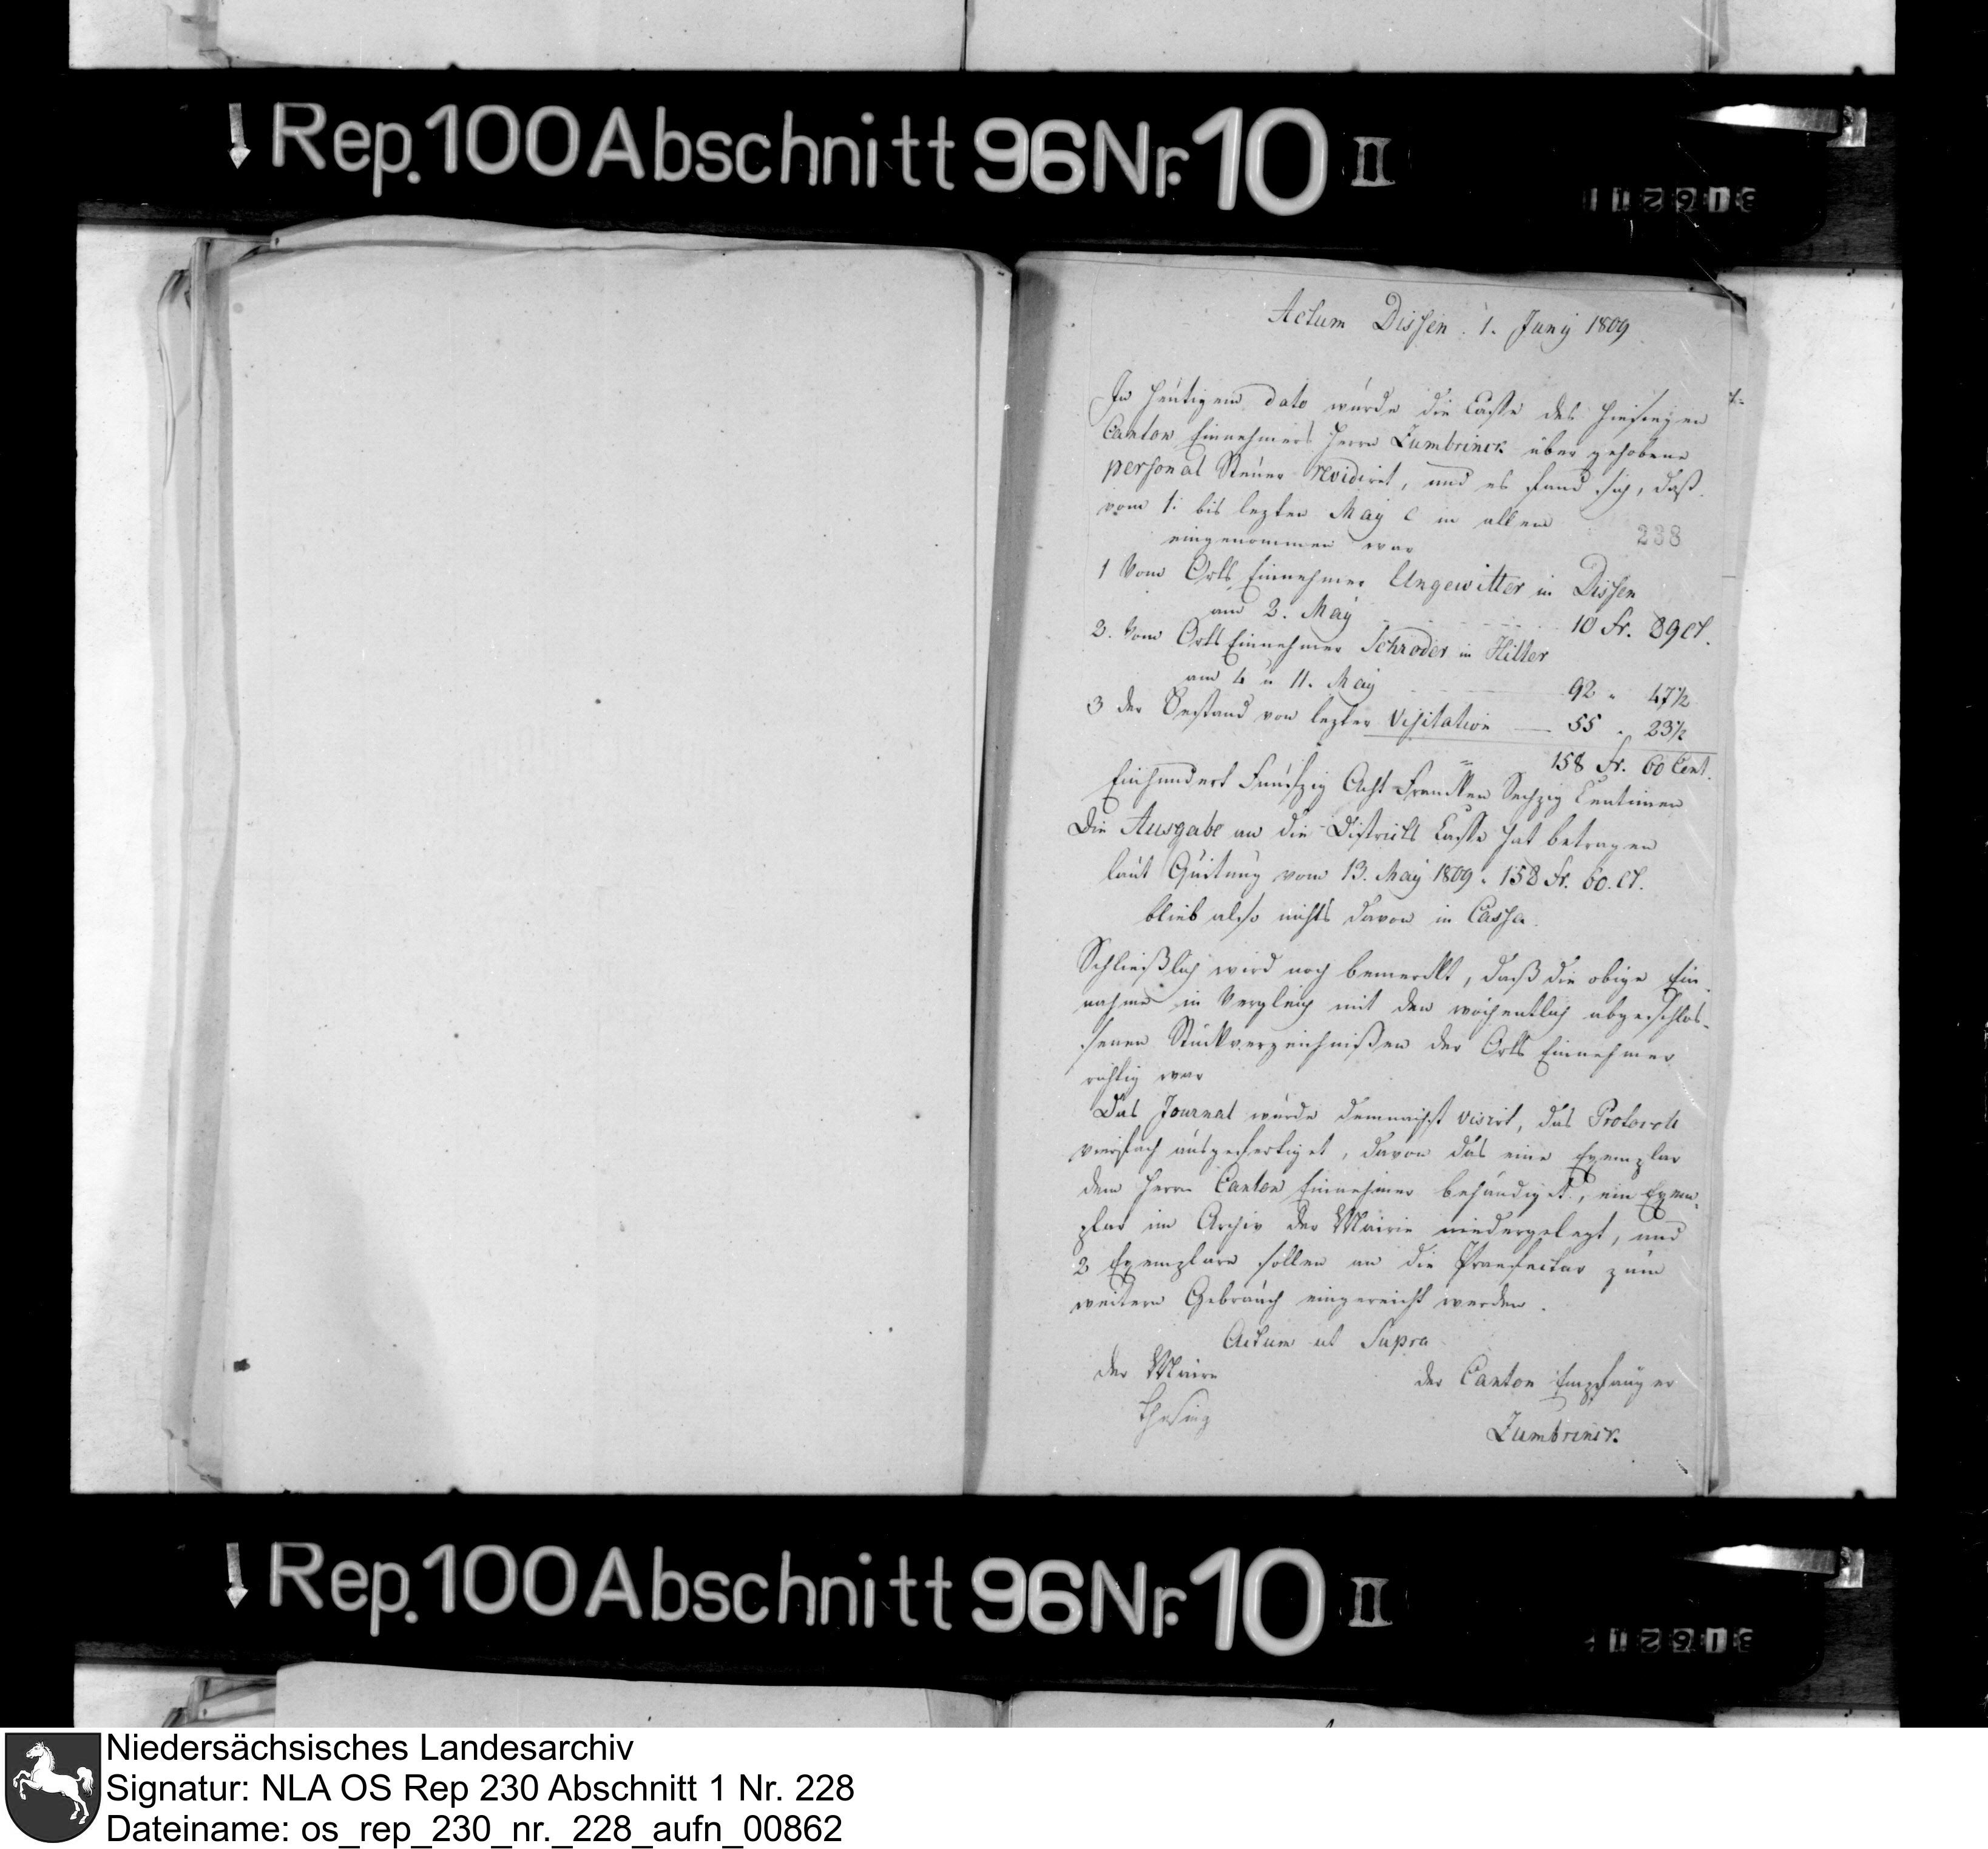 Rep. 100 Abschnitt 96 Nr. 10 II
Actum Dissen. 1. Juny 1809
In heutigem dato wurde die Casse des hiesigen
Canton Einnehmers Herrn Zumbrinck über gehobene
personal Steuer revidirt, und es fand sich, daß
vom 1. bis lezten May c in allem
238
eingenommen war
1 Vom Orts Einnehmer Ungewitter in Dissen
am 2. May 10 Fr. 89 Ct.
2. Vom Orts Einnehmer Schröder in Hilter
am 4 u 11. May 92 " 47½
3 der Bestand von lezter Visitation — 55 " 23½
158 Fr. 60 Cent.
Einhundert Funfzig Acht Francken Sechzig Centimen
Die Ausgabe an die Districts Casse hat betragen
laut Quitung vom 13. May 1809 " 158 Fr. 60. Ct.
blieb also nichts davon in Cassa.
Schließlich wird noch bemerckt, daß die obige Ein-
nahme in Vergleich mit den wöchentlich abgeschlos-
senen Stückverzeichnißen der Orts Einnehmer
richtig war
Das Journal wurde demnächst visirt, das Protocoll
vierfach ausgefertiget, davon das eine Exemplar
dem Herrn Canton Einnehmer behändiget, ein Exem-
plar im Archiv der Mairie niedergelegt, und
2 Exemplare sollen an die Praefectur zum
weitern Gebrauch eingereicht werden.
Actum ut Supra
der Maire der Canton Empfänger
Zumbrinck
Rep. 100 Abschnitt 96 Nr. 10 II
Niedersächsisches Landesarchiv
Signatur: NLA OS Rep 230 Abschnitt 1 Nr. 228
Dateiname: os_rep_230_nr._228_aufn_00862